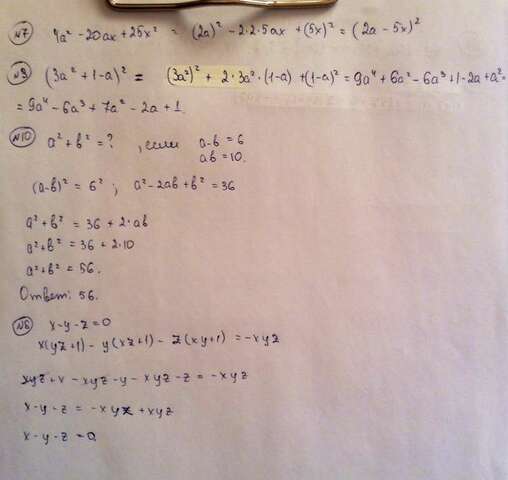 №7 4a² - 20ax + 25x² = (2a)² - 2·2·5ax + (5x)² = (2a - 5x)²
№9 (3a² + 1 - a)² = (3a²)² + 2·3a²·(1-a) + (1-a)² = 9a⁴ + 6a² - 6a³ + 1 - 2a + a² =
= 9a⁴ - 6a³ + 7a² - 2a + 1.
№10 a² + b² = ? , если a-b = 6
ab = 10.
(a-b)² = 6² ; a² - 2ab + b² = 36
a² + b² = 36 + 2·ab
a² + b² = 36 + 2·10
a² + b² = 56.
Ответ: 56.
№8 x-y-z=0
x(yz+1) - y(xz+1) - z(xy+1) = -xyz
xyz + x - xyz - y - xyz - z = -xyz
x-y-z = -xyz + xyz
x-y-z = 0